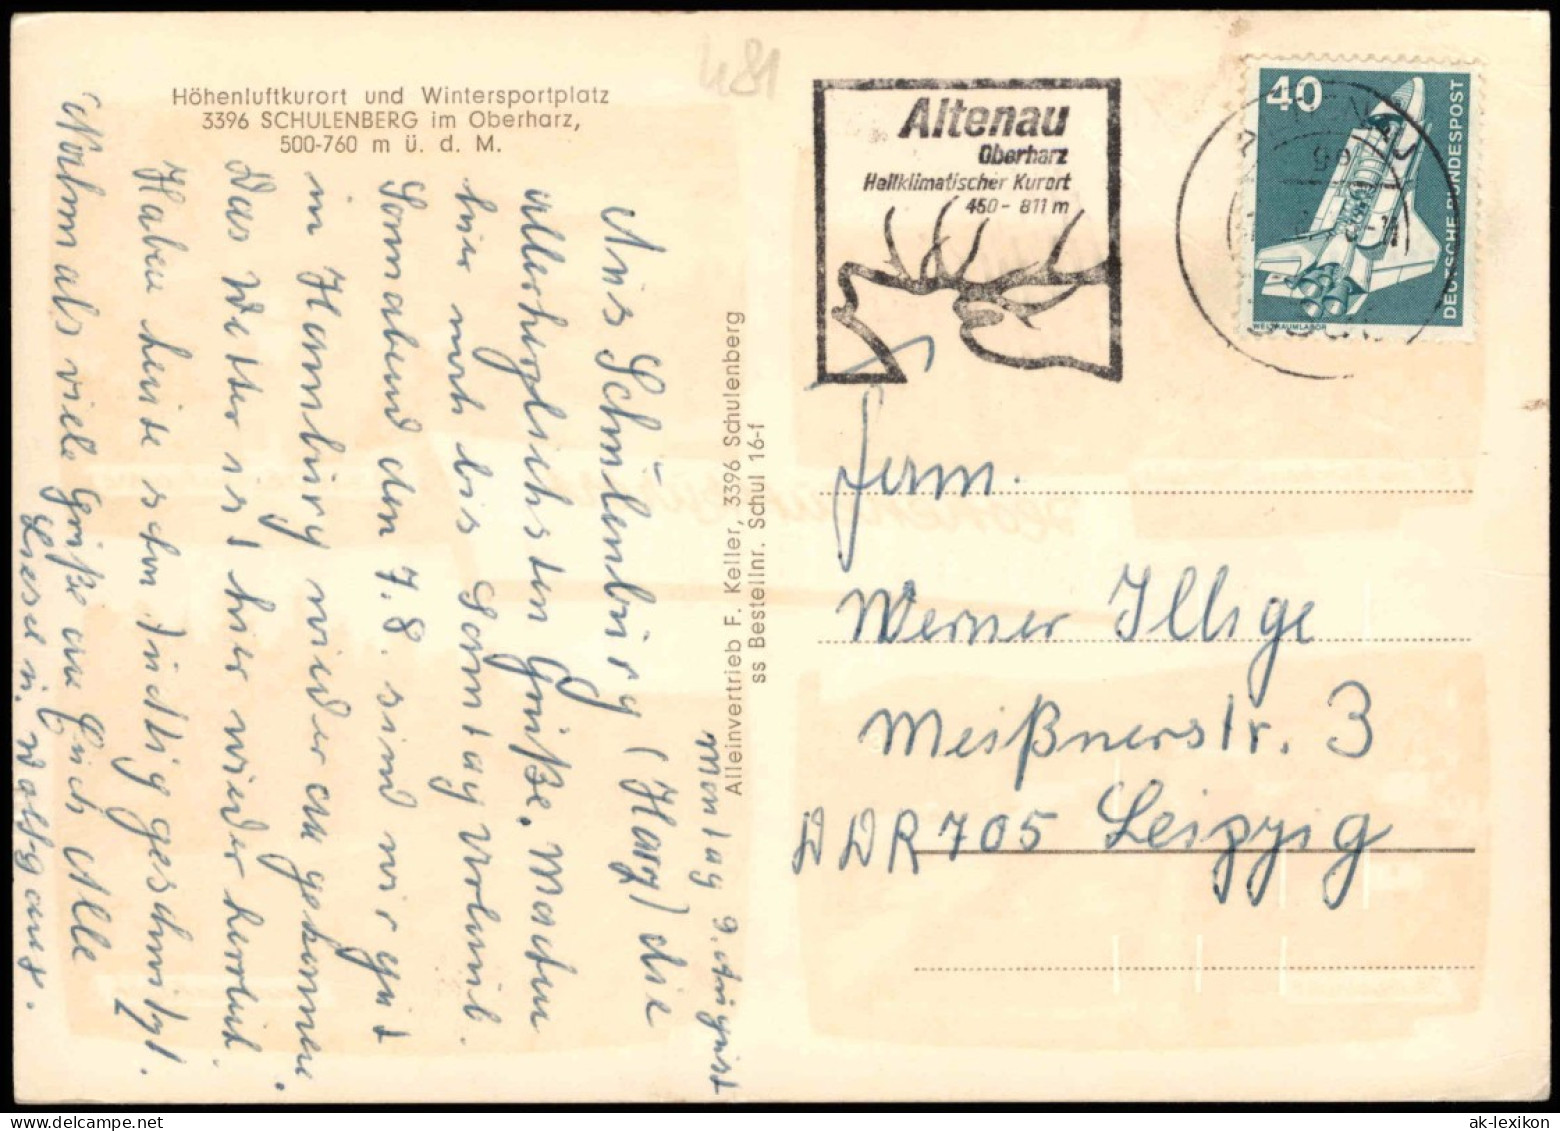 Höhenluftkurort und Wintersportplatz
3396 SCHULENBERG im Oberharz,
500-760 m ü. d. M.
481
Montag 9. August
Aus Schulenburg (Harz) die
allerherzlichsten Grüße. Machen
hier noch bis Sonntag Urlaub.
Sonnabend den 7.8. sind wir gut
in Hamburg wieder angekommen.
Das Wetter ist hier wieder herrlich.
Haben heute schon tüchtig geschwitzt.
Nochmals viele Grüße an Euch Alle
Liesel u. Wolfgang.
Alleinvertrieb F. Keller, 3396 Schulenberg
ss Bestellnr. Schul 16-f
Altenau
Oberharz
Heilklimatischer Kurort
450 - 811 m
40
DEUTSCHE BUNDESPOST
WELTRAUMLABOR
Fam.
Werner Illge
Meißnerstr. 3
DDR 705 Leipzig
ak-lexikon